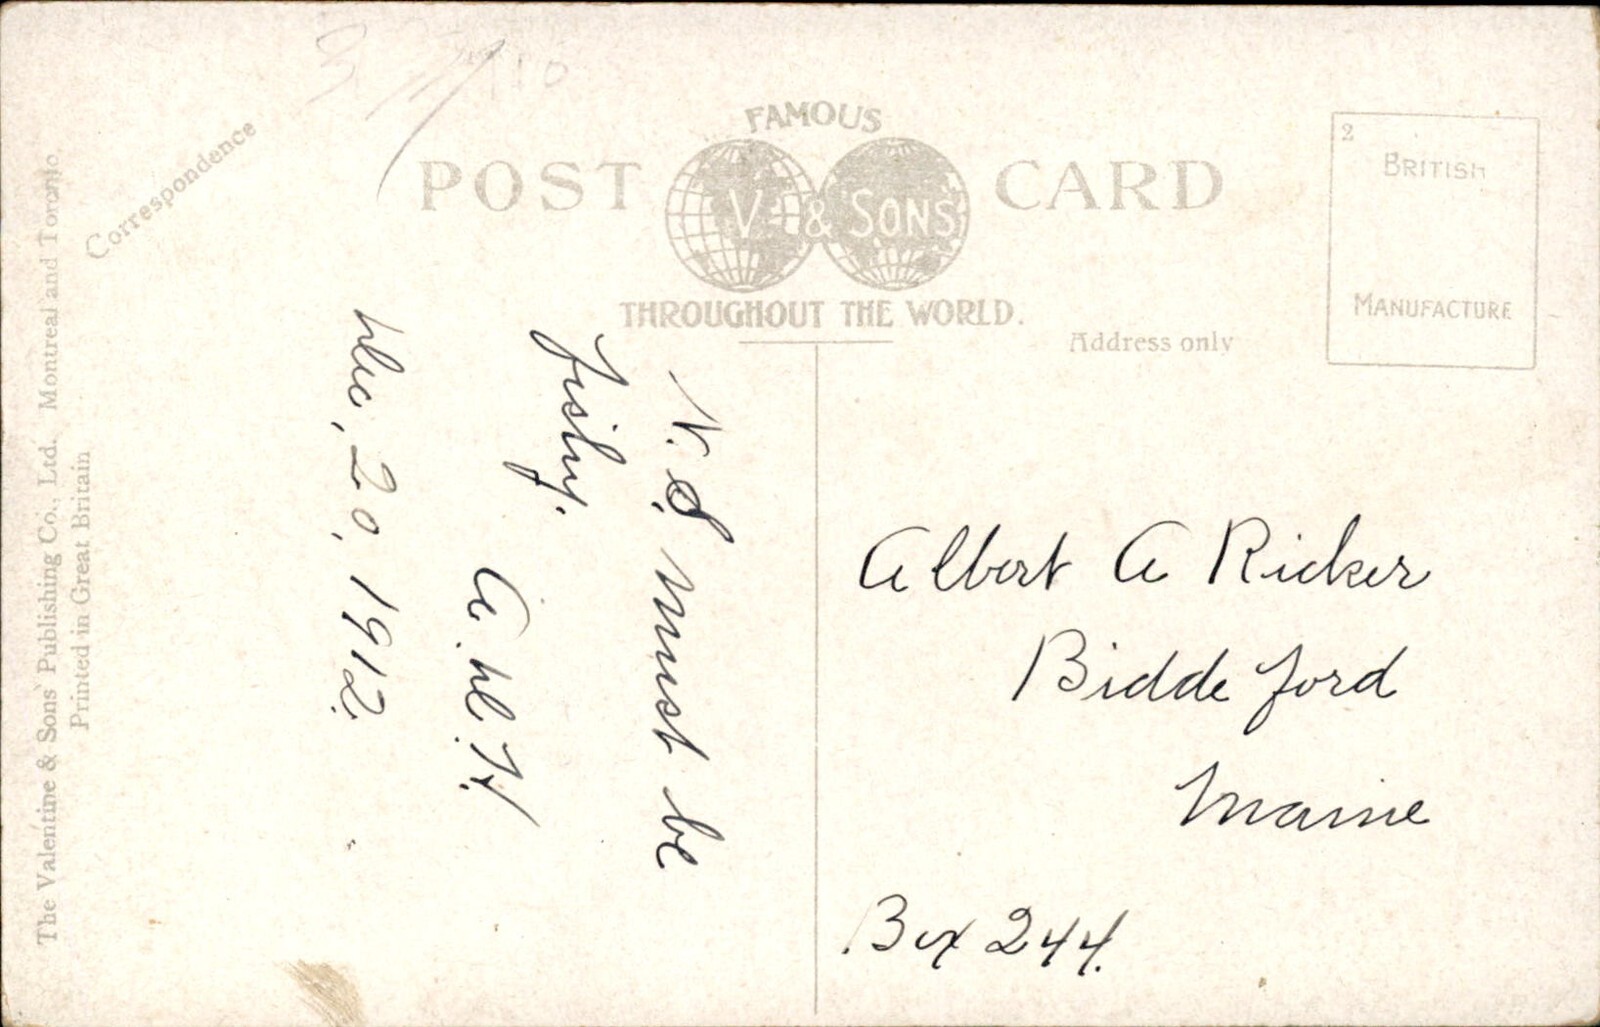 FAMOUS
POST CARD
V & SONS
THROUGHOUT THE WORLD.
Correspondence
Address only
2
BRITISH
MANUFACTURE
The Valentine & Sons' Publishing Co., Ltd. Montreal and Toronto.
Printed in Great Britain
N. S. must be
fishy.
A. W. H.
20, 1912.
Albert A Ricker
Biddeford
Maine
Box 244.